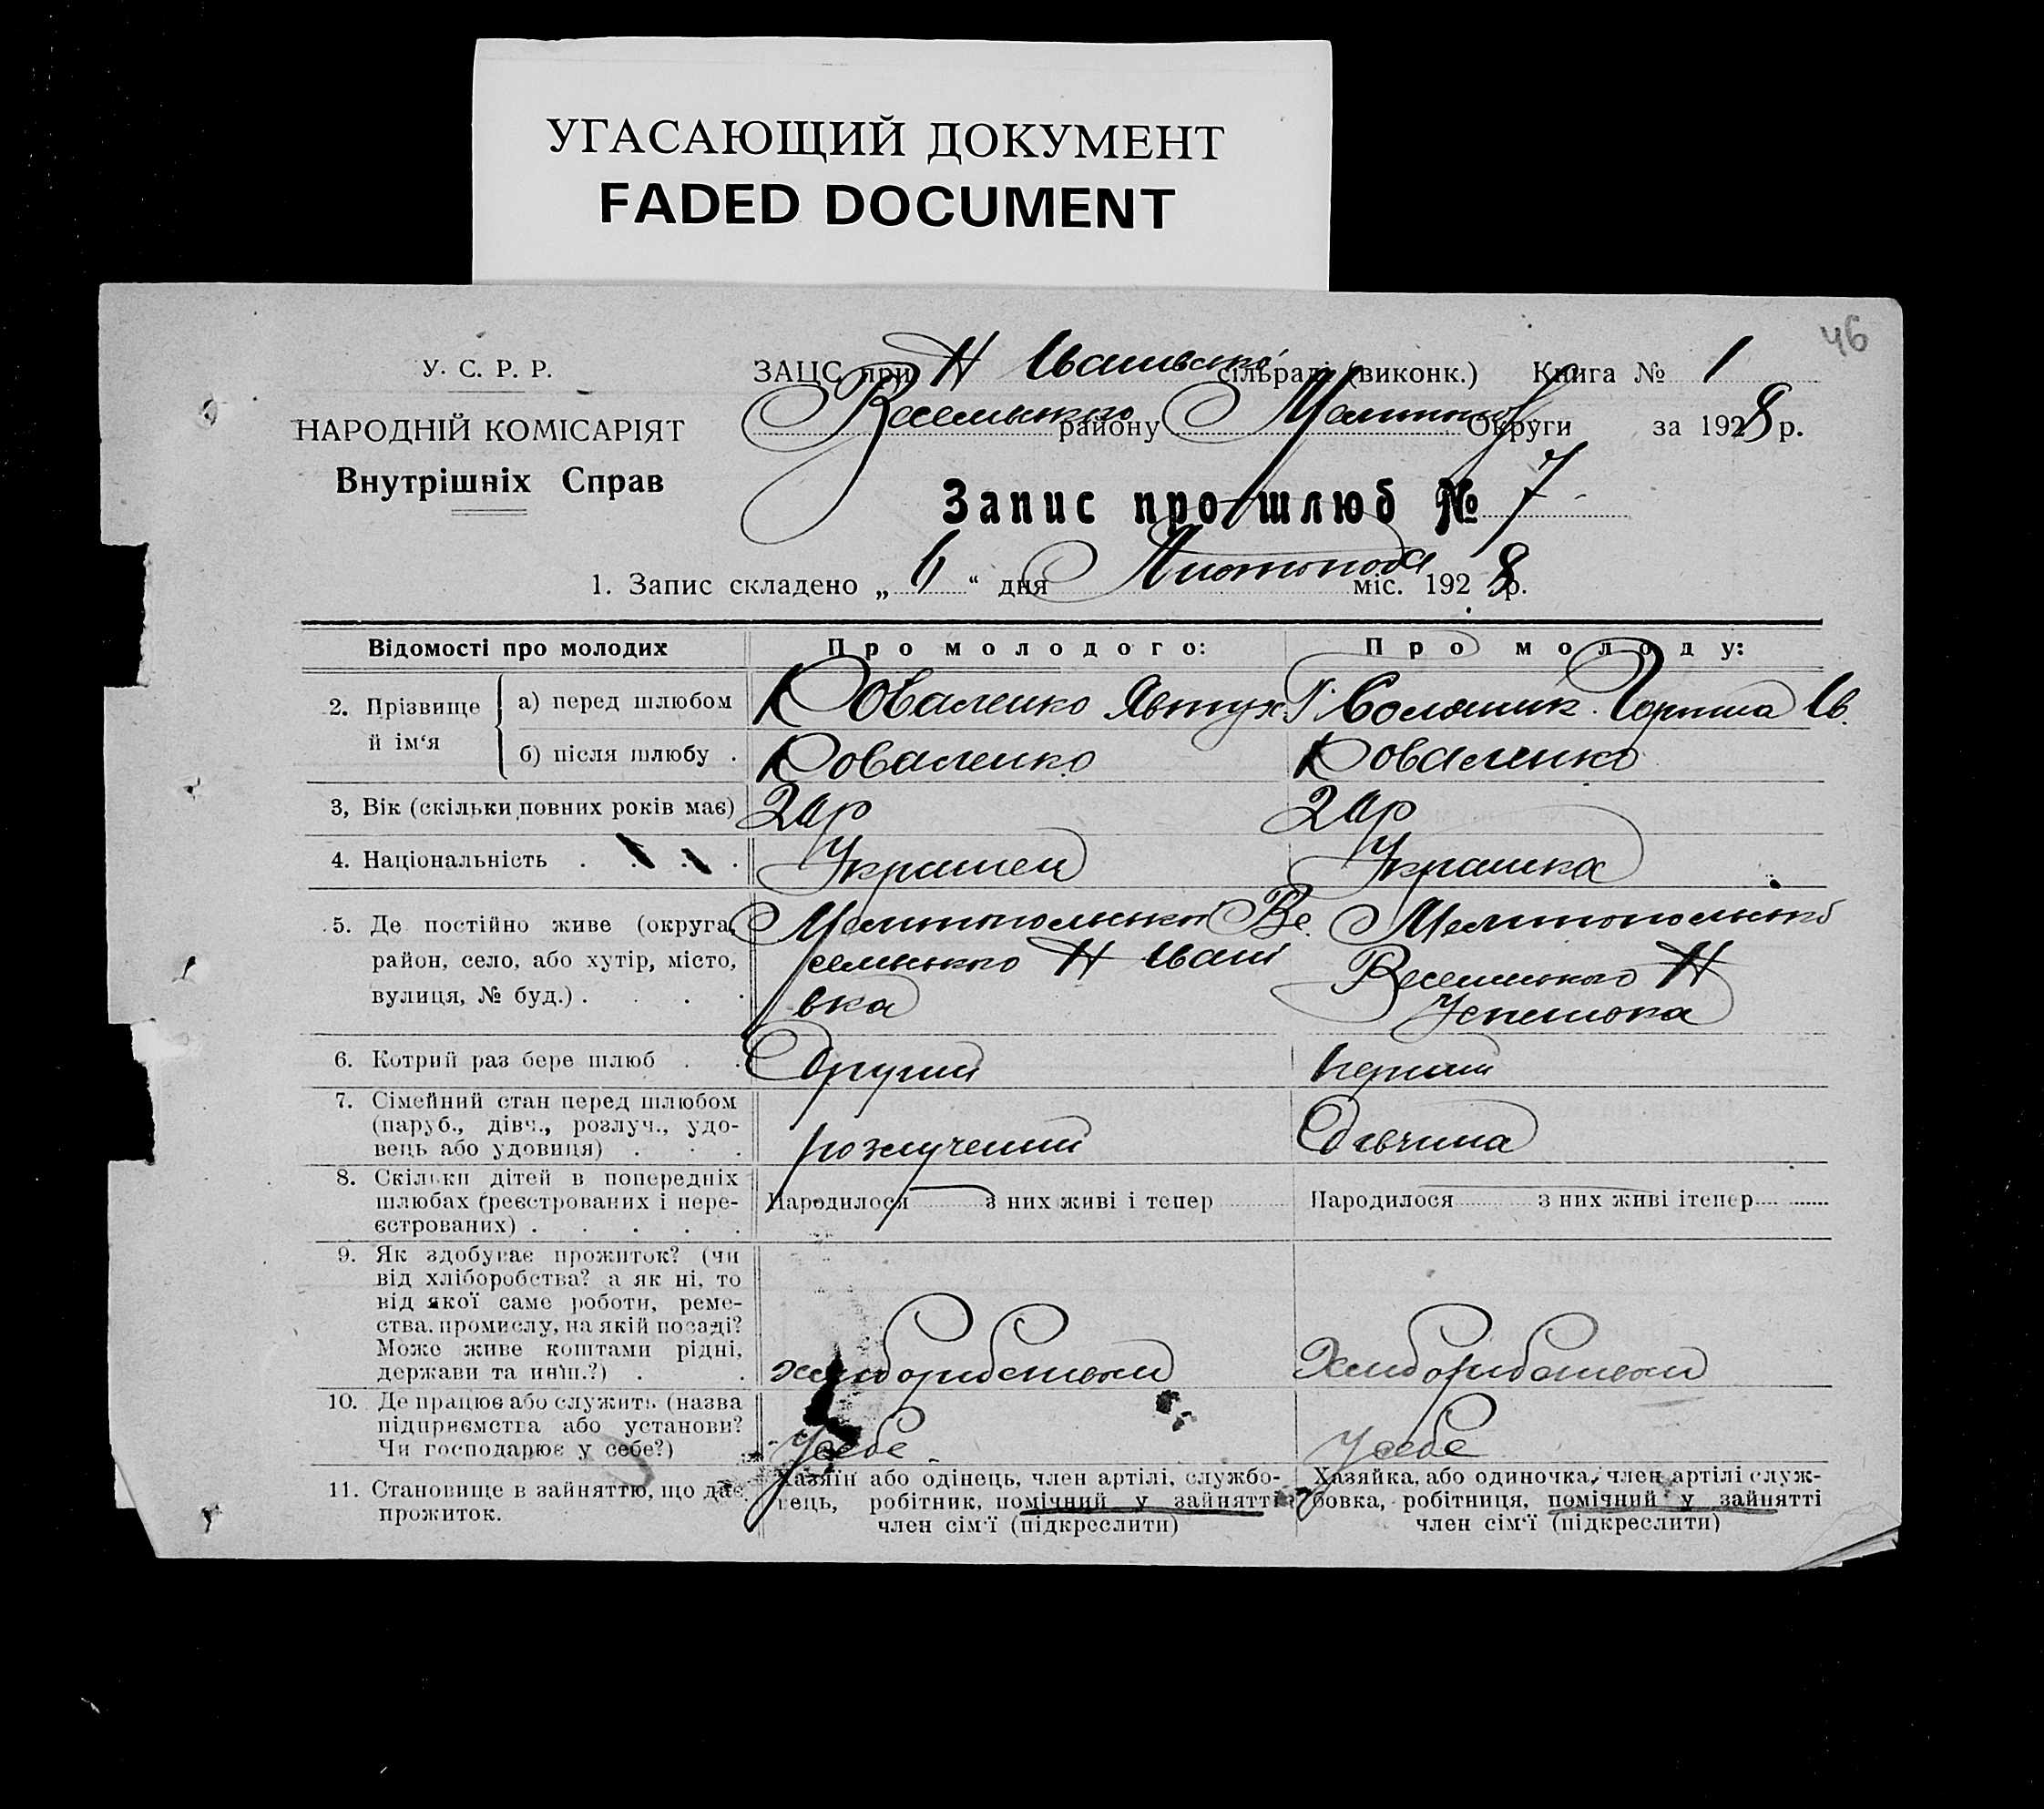 УГАСАЮЩИЙ ДОКУМЕНТ
FADED DOCUMENT
46
У. С. Р. Р.
НАРОДНІЙ КОМІСАРІЯТ
Внутрішніх Справ
ЗАЦС при Н Іванівської сільраді (виконк.) Книга № 1
Веселинського району Округи за 1928 р.
Запис про шлюб № 7
1. Запис складено „6“ дня Листопада міс. 1928 р.
Відомості про молодих
Про молодого:
Про молоду:
2. Прізвище й ім‘я
а) перед шлюбом
Коваленко Явтух Г.
Ів.
б) після шлюбу .
Коваленко
Коваленко
3, Вік (скільки повних років має)
4. Національність . . . .
Українец
Українка
5. Де постійно живе (округа, район, село, або хутір, місто, вулиця, № буд.) . . . .
Мелитопольської Ве
селинського Н Івані
вка
Мелитопольської
Веселинського Н
Успенювка
6. Котрий раз бере шлюб . .
Другий
первий
7. Сімейний стан перед шлюбом (паруб., дівч., розлуч., удовець або удовиця) . . .
розлучений
Дівчина
8. Скільки дітей в попередніх шлюбах (реєстрованих і нереєстрованих) . . . . .
Народилося з них живі і тепер
Народилося з них живі ітепер
9. Як здобуває прожиток? (чи від хліборобства? а як ні, то від якої саме роботи, ремества, промислу, на якій посаді? Може живе коштами рідні, держави та инш.?) . .
хліборобством
Хліборобством
10. Де працює або служить (назва підприємства або установи? Чи господарює у себе?)
У себе
У себе
11. Становище в зайняттю, що дає прожиток.
Хазяїн або одінець, член артілі, службовець, робітник, помічний у зайнятті член сім‘ї (підкреслити)
Хазяйка, або одиночка, член артілі службовка, робітниця, помічний у зайнятті член сім‘ї (підкреслити)